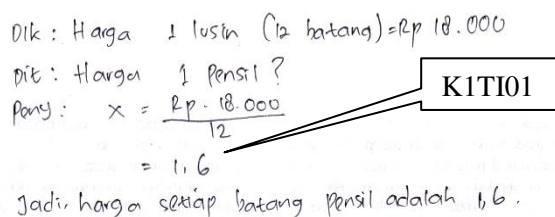 Dik : Harga 1 lusin (12 batang) = Rp 18.000
Dit : Harga 1 Pensil ?
Peny : x = Rp. 18.000
12
= 1,6
Jadi, harga setiap batang pensil adalah 1,6.
K1TI01